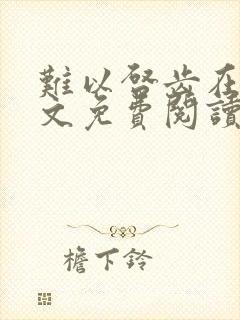 難以啓齒在
文免費閱讀
檐下鈴